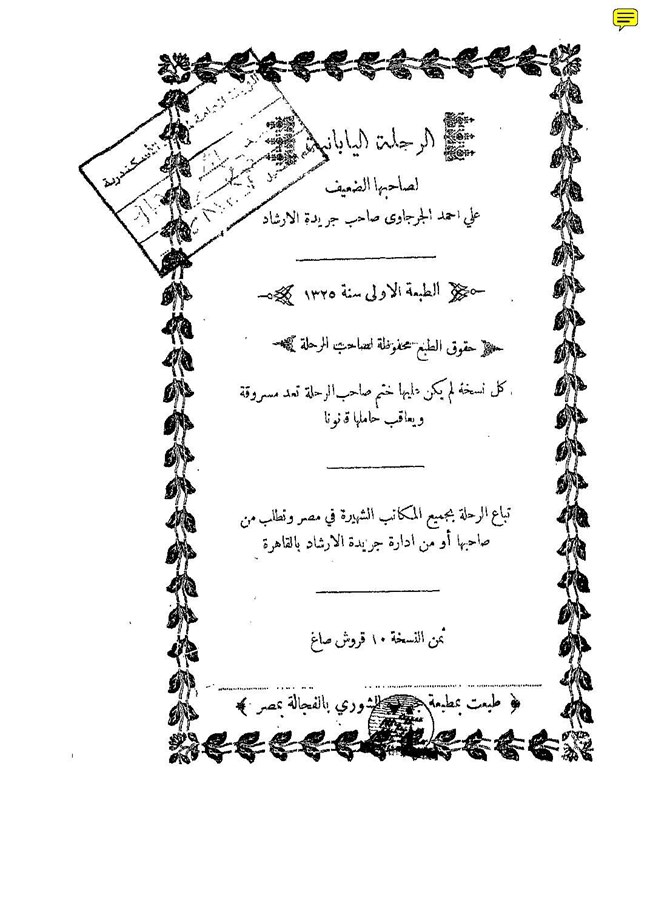 الرحلة اليابانية
لصاحبها الضعيف
علي احمد الجرجاوى صاحب جريدة الارشاد
الطبعة الاولى سنة ١٣٢٥
حقوق الطبع محفوظة لصاحب الرحلة
كل نسخة لم يكن عليها ختم صاحب الرحلة تعد مسروقة
ويعاقب حاملها قانونا
تباع الرحلة بجميع المكاتب الشهيرة في مصر وتطلب من
صاحبها أو من ادارة جريدة الارشاد بالقاهرة
ثمن النسخة ١٠ قروش صاغ
طبعت بمطبعة الشوري بالفجالة بمصر
الأسكندرية